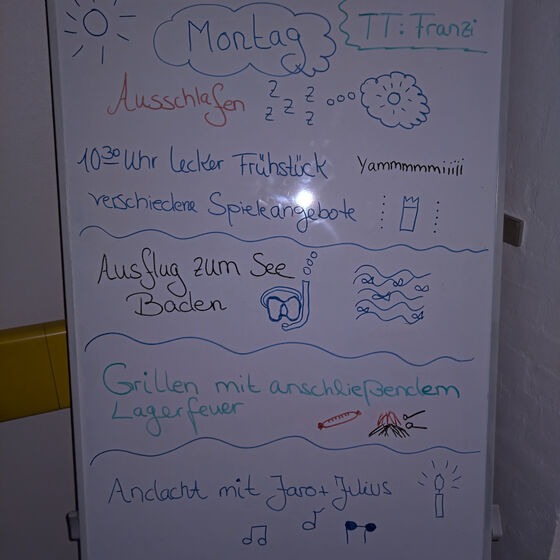 Montag
TT: Franzi
Ausschlafen z z z z z
10³⁰ Uhr lecker Frühstück Yammmmmiiiii
verschiedene Spieleangebote
Ausflug zum See
Baden
Grillen mit anschließendem
Lagerfeuer
Andacht mit Jaro + Julius